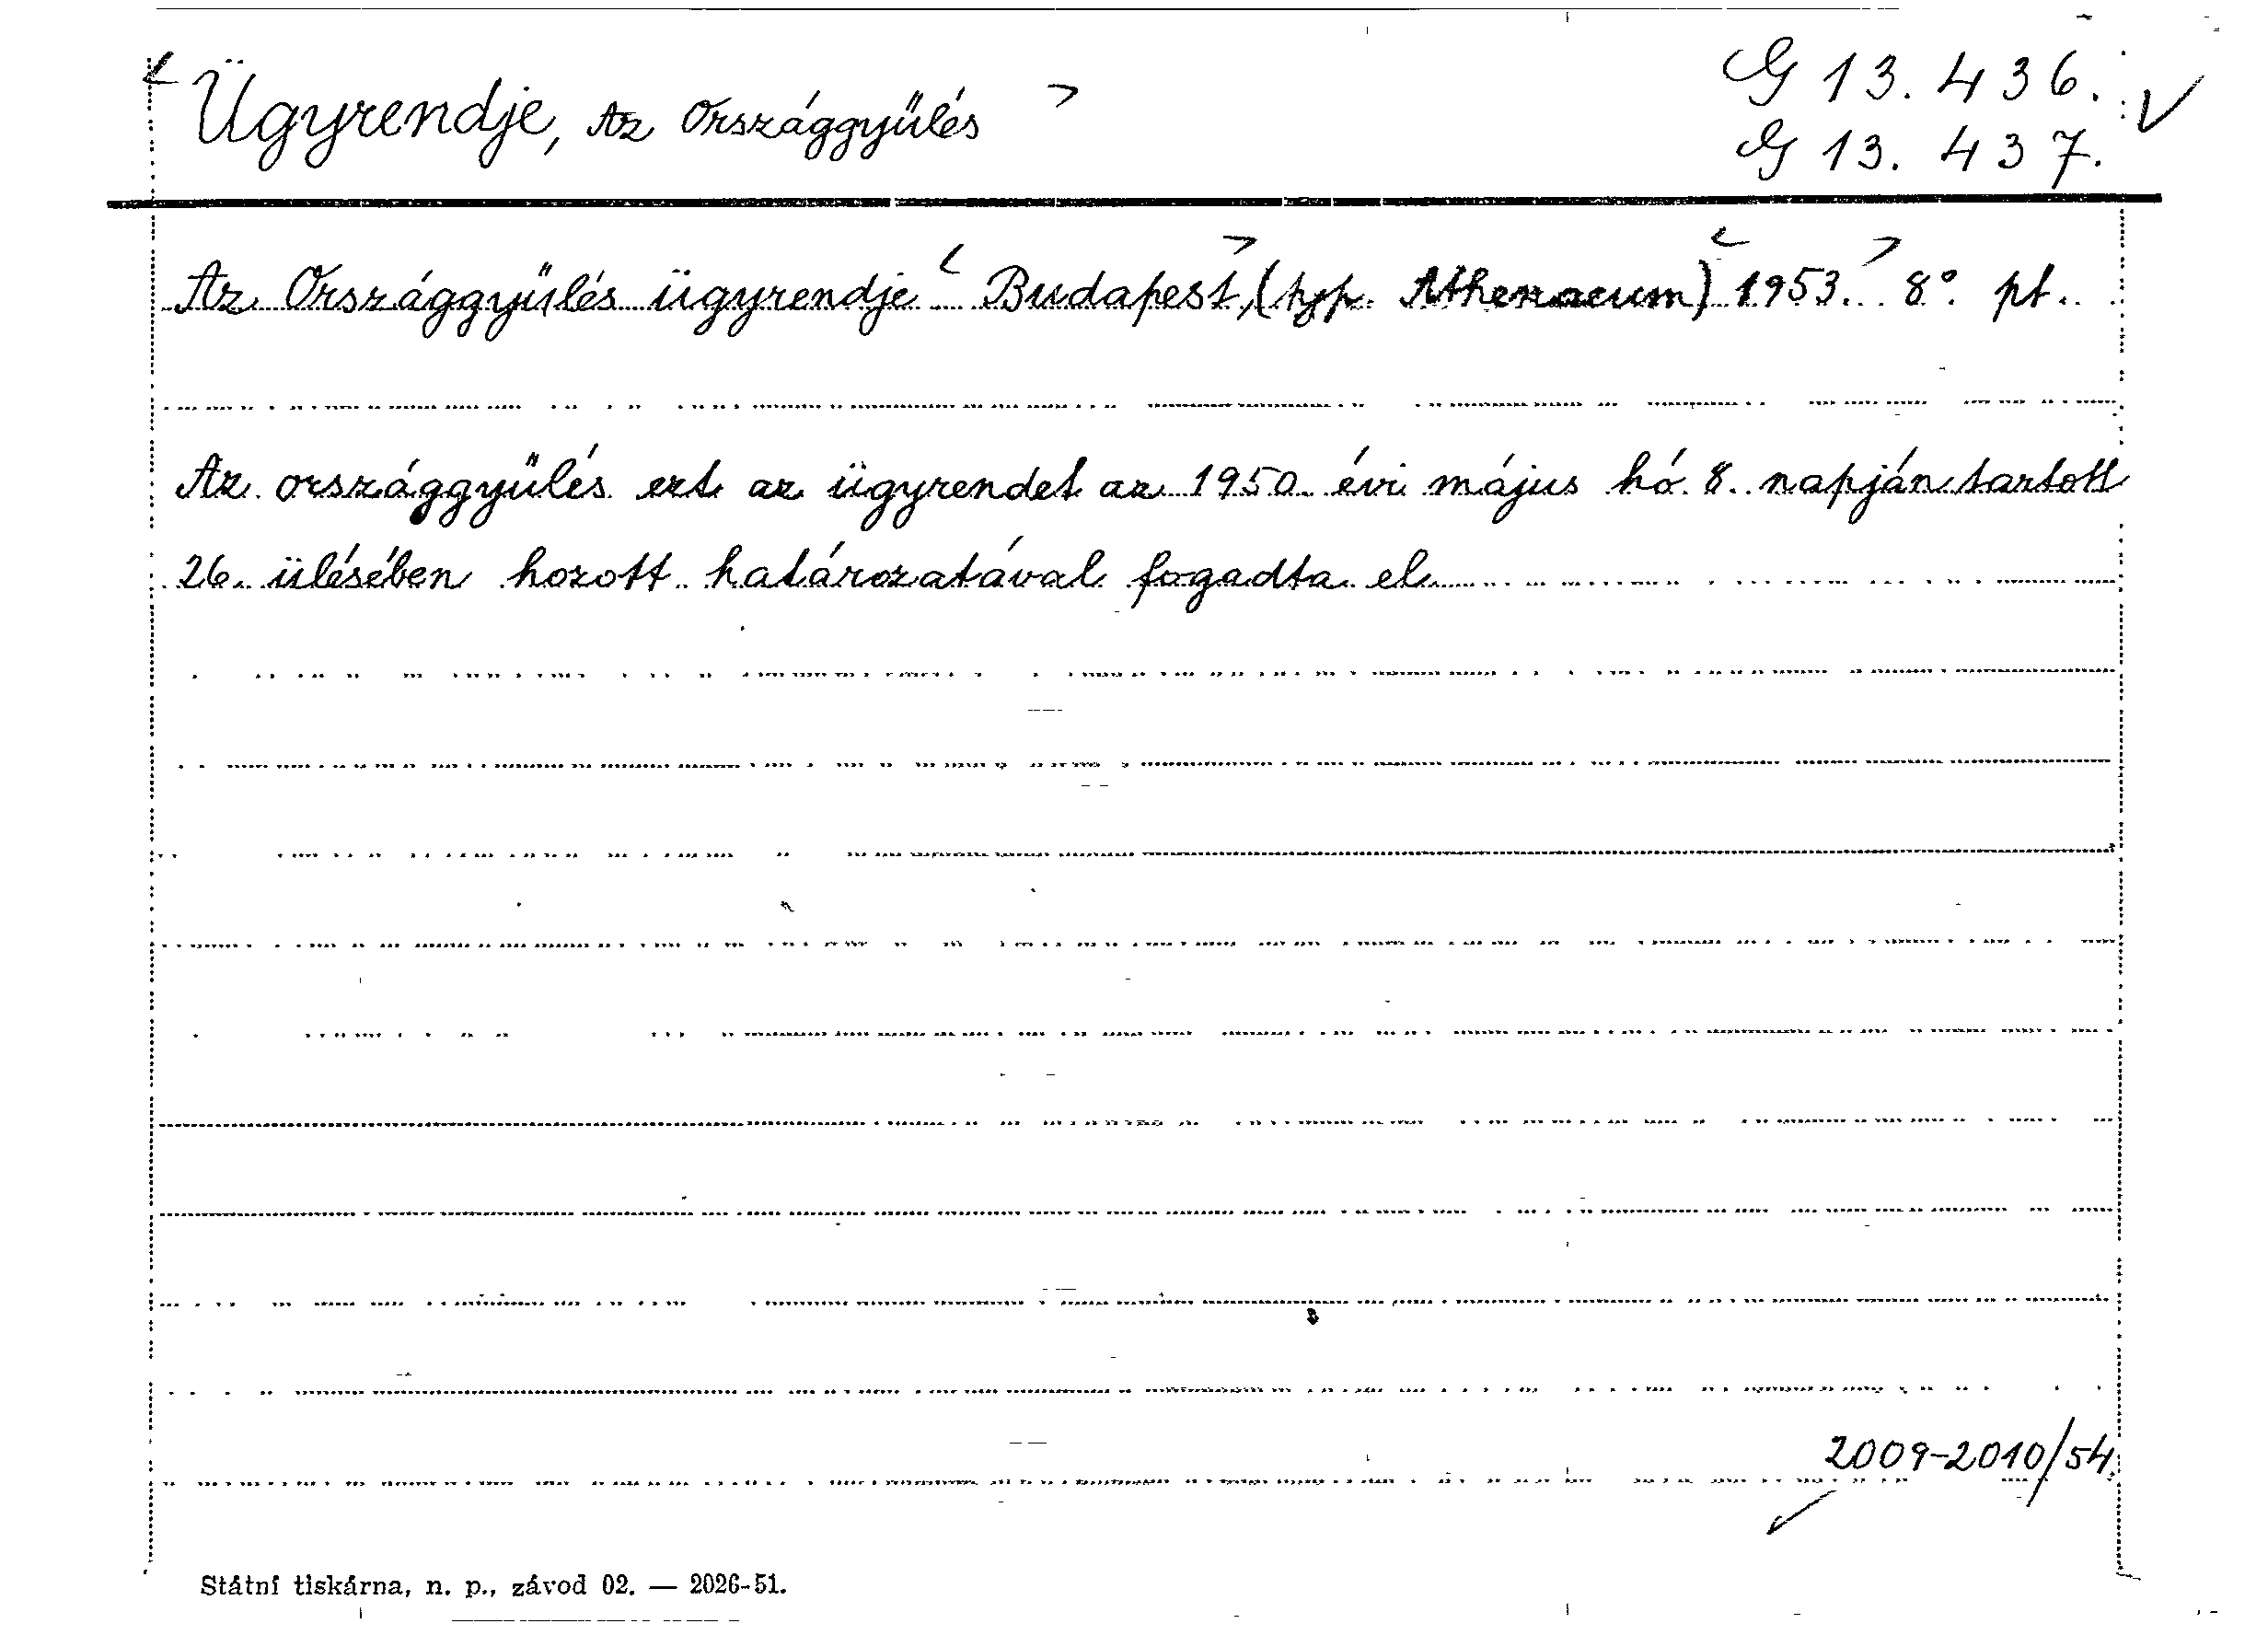 < Ügyrendje, Az Országgyűlés >
G 13.436. V
G 13.437.
Az Országgyűlés ügyrendje < Budapest, > (typ. Athenaeum) < 1953. > 8°. pt.
Az országgyűlés ezt az ügyrendet az 1950. évi május hó 8. napján tartott
26. ülésében hozott határozatával fogadta el
2009-2010/54.
Státní tiskárna, n. p., závod 02. — 2026-51.